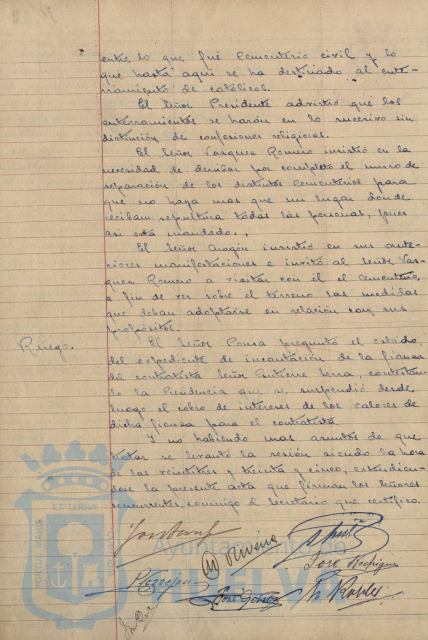 entre lo que fué Cementerio civil y lo
que hasta aquí se ha destinado al ente-
rramiento de católicos.
El Señor Presidente advirtió que los
enterramientos se harán en lo sucesivo sin
distinción de confesiones religiosas.
El Señor Vasquez Romero insistió en la
necesidad de derribar por completo el muro de
separación de los distintos Cementerios para
que no haya mas que un lugar donde
reciban sepultura todas las personas, pues
así está mandado.
El Señor Aragón insistió en sus ante-
riores manifestaciones e invitó al Señor Vas-
quez Romero a visitar con él el Cementerio,
a fin de ver sobre el terreno las medidas
que deban adoptarse en relación con sus
propósitos.
Ruego.
El Señor Ponsa preguntó el estado
del expediente de incautación de la fianza
del contratista Señor Gutierre Serra, contestan-
do la Presidencia que se suspendió desde
luego el cobro de intereses de los valores de
dicha fianza para el contratista
Y no habiendo mas asuntos de que
tratar se levantó la sesión siendo la hora
de las veintitres y treinta y cinco, extendien-
dose la presente acta que firman los señores
concurrentes, conmigo el Secretario que certifico.
Oliveira
José Rodriguez
José Gómez
Robles
PORTUS MARIS
ET TERRAE
Ayuntamiento de
HUELVA